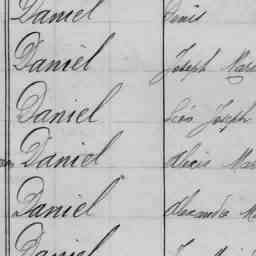 Daniel Denis
Daniel Joseph
Daniel Léon Joseph
Daniel Alexis
Daniel Alexandre
Daniel